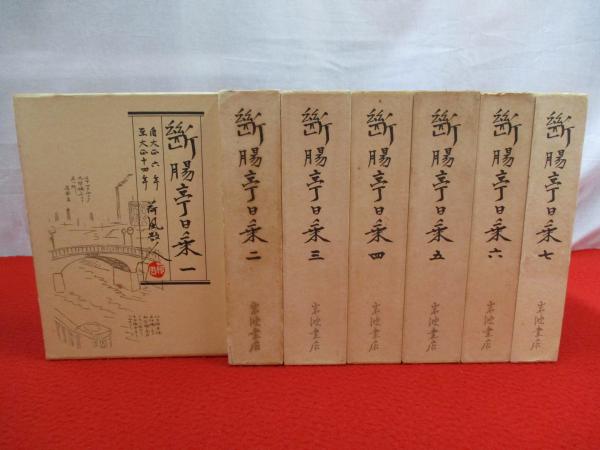 斷腸亭日乗 一
自大正六年
至大正十四年
荷風題
斷腸亭日乗 二
岩波書店
斷腸亭日乗 三
岩波書店
斷腸亭日乗 四
岩波書店
斷腸亭日乗 五
岩波書店
斷腸亭日乗 六
岩波書店
斷腸亭日乗 七
岩波書店